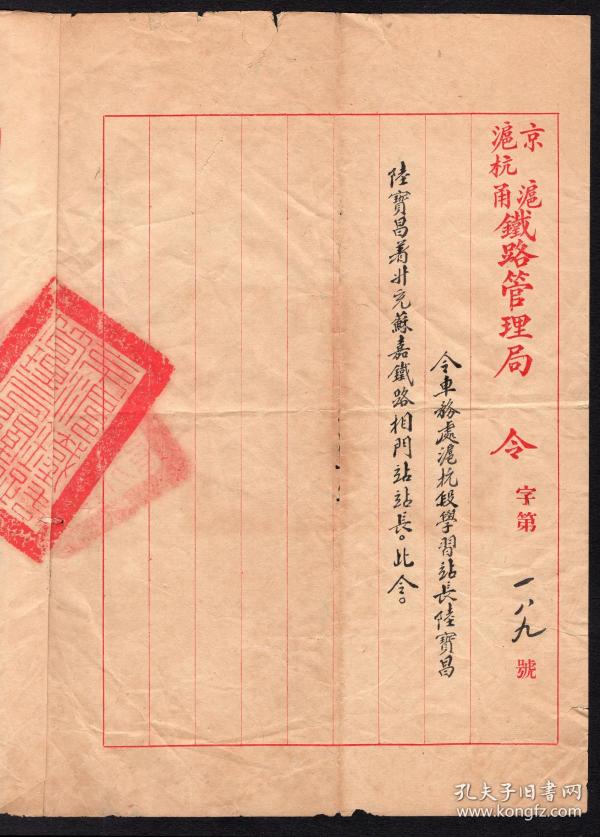 京滬
滬杭甬
鐵路管理局 令 字第一八九號
令車務處滬杭段學習站長陸寶昌
陸寶昌着升充蘇嘉鐵路相門站站長。此令。
孔夫子旧书网
www.kongfz.com